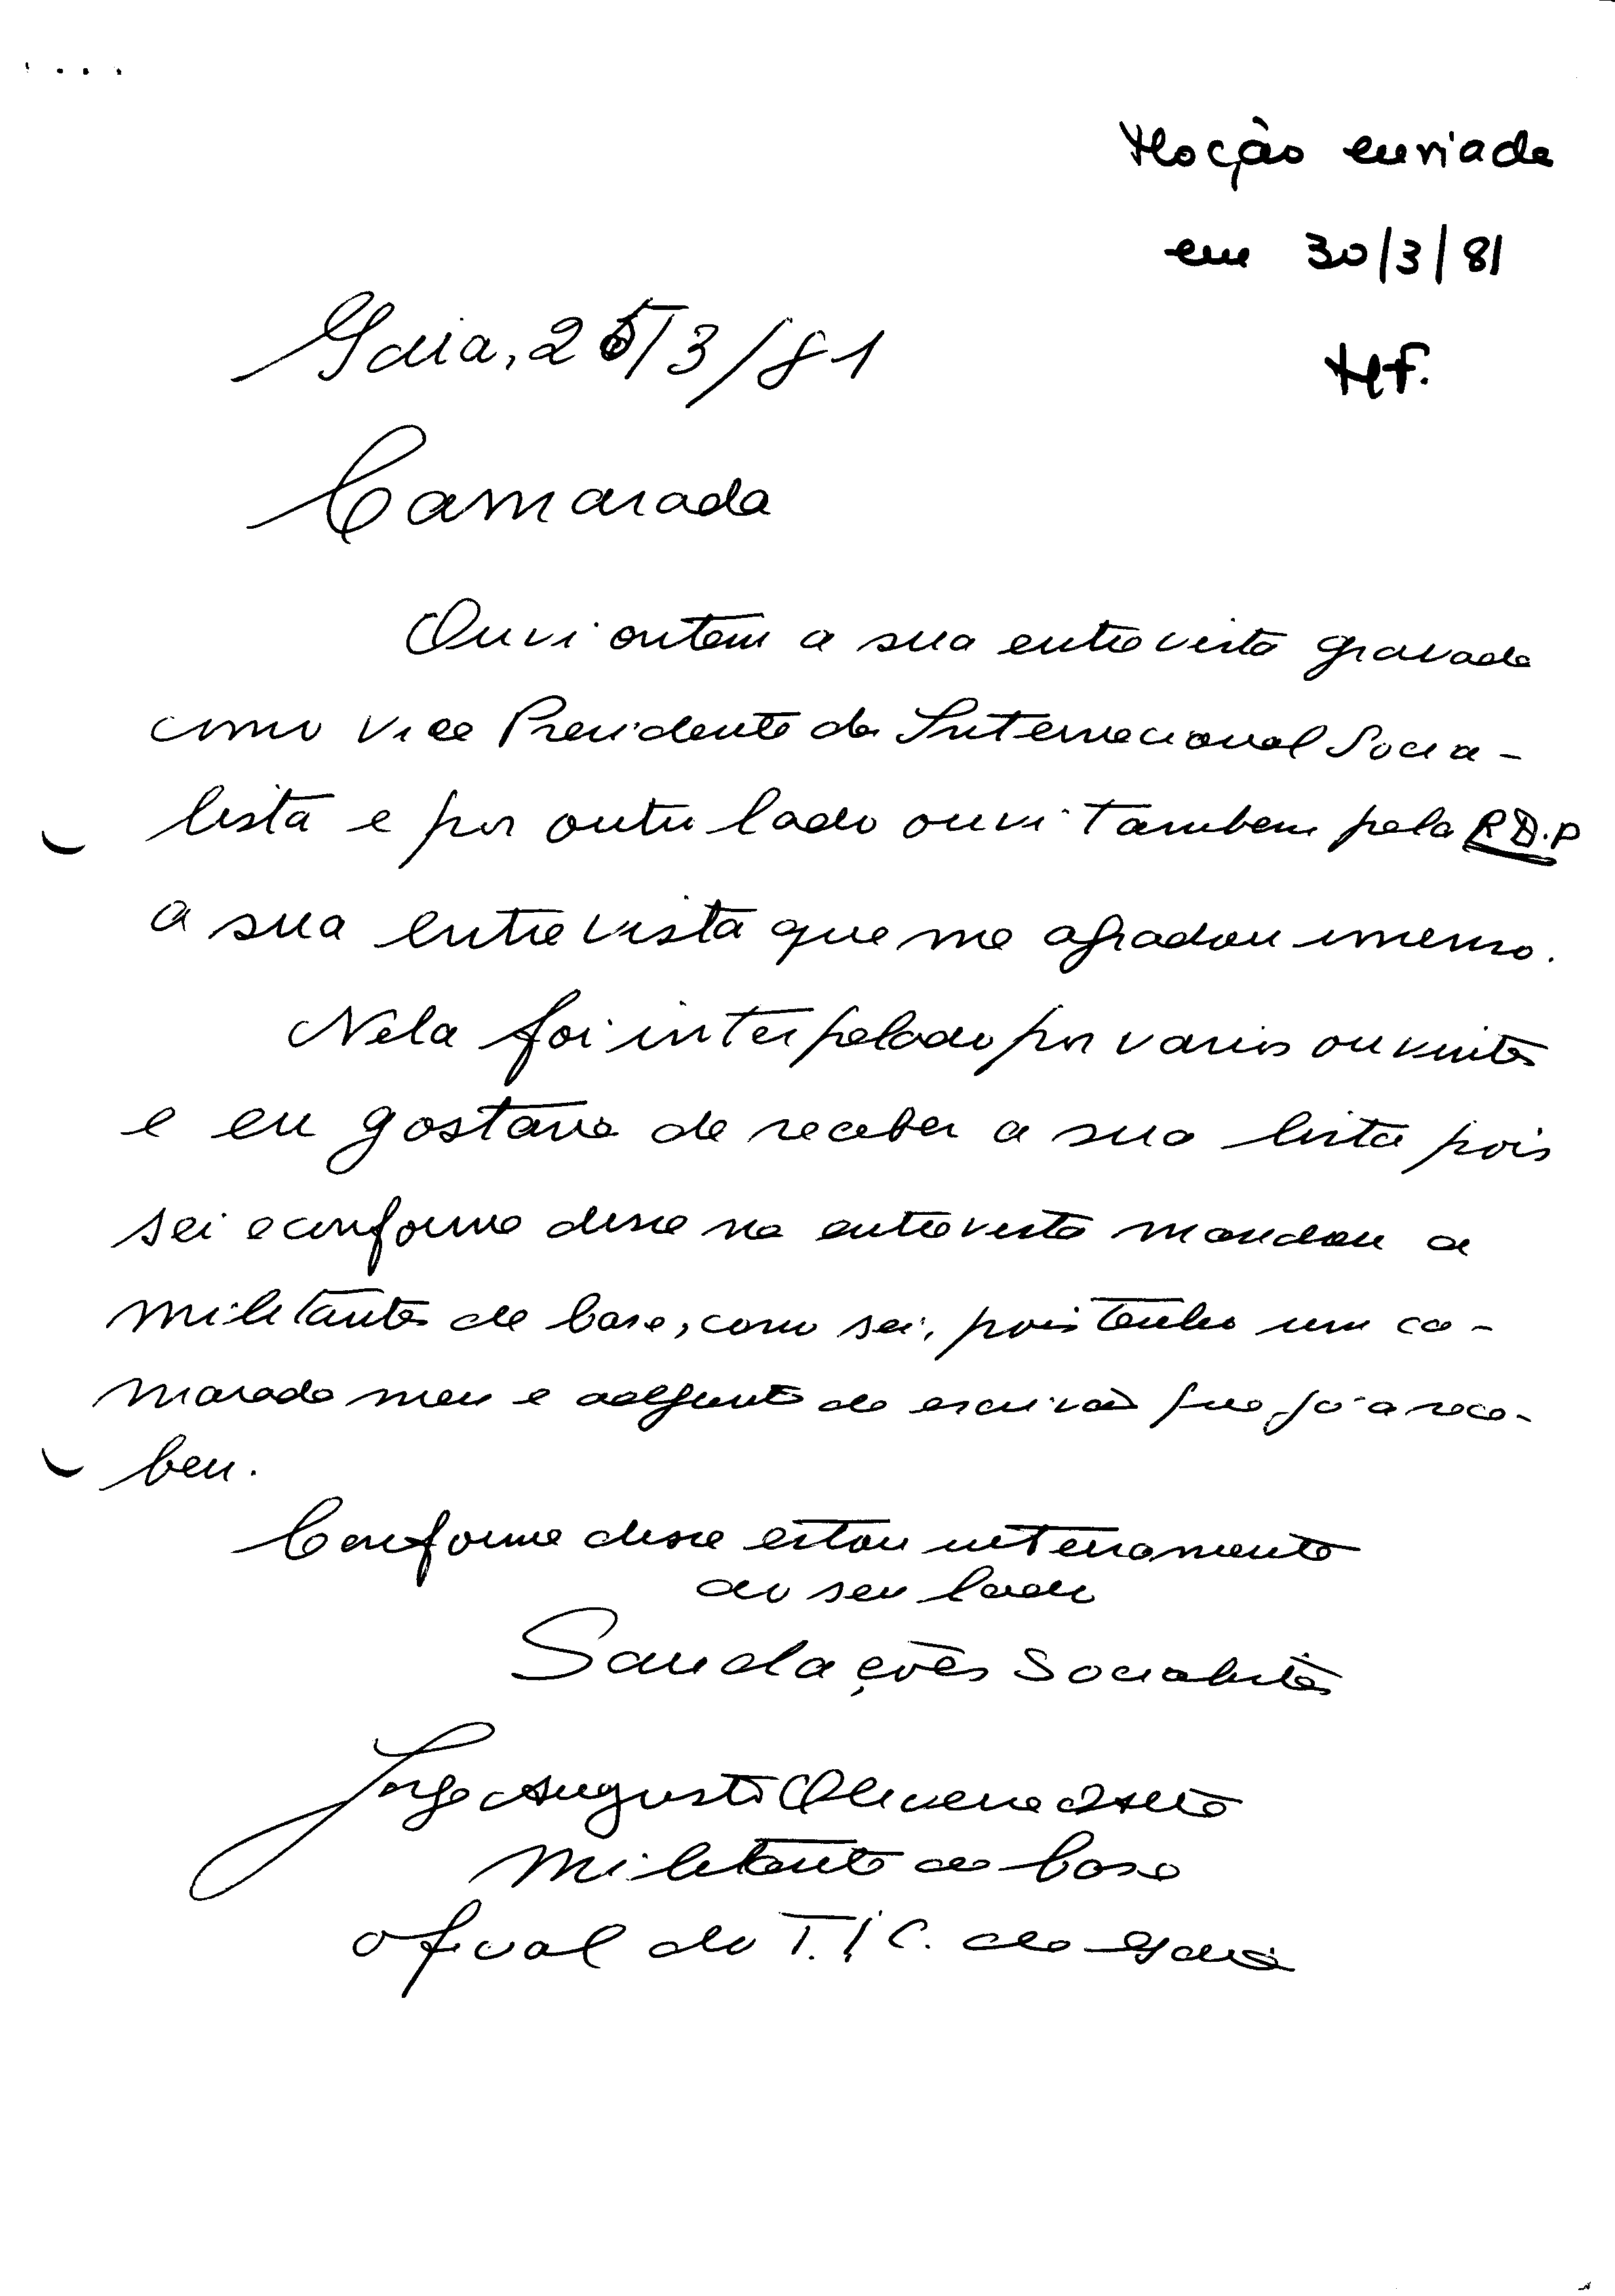 Moção enviada
em 30/3/81
Gaia, 25/3/81
Camarada
Ouvi ontem a sua entrevista gravada
como Vice Presidente da Internacional Socia-
lista e por outro lado ouvi tambem pela RD.P
a sua entrevista que me agradou imenso.
Nela foi interpelado por varios ouvintes
e eu gostava de receber a sua lista pois
sei e conforme disse na entrevista mandou a
militantes de base, como sei, pois tenho um ca-
marada meu e adjunto de escrivão que já a rece-
beu.
Conforme disse estou inteiramente
ao seu lado
Saudações Socialistas
Jorge Augusto Oliveira
Militante de base
oficial do T.I.C. de Gaia